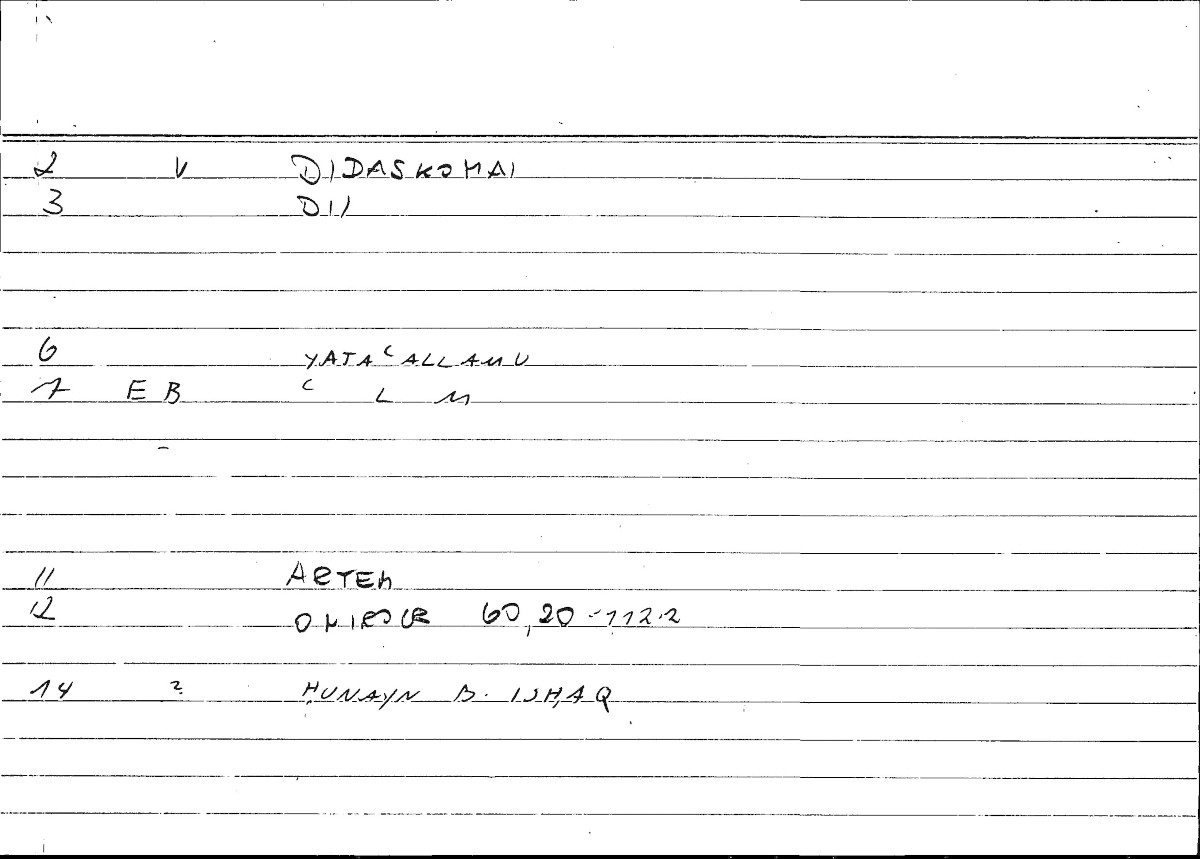 2 V DIDASKOMAI
3 DI/
6 YATAʿALLAMU
7 EB ʿ L M
11 ARTEM
12 ONIROCR 60,20-112.2
14 2 ḤUNAYN B. ISḤAQ